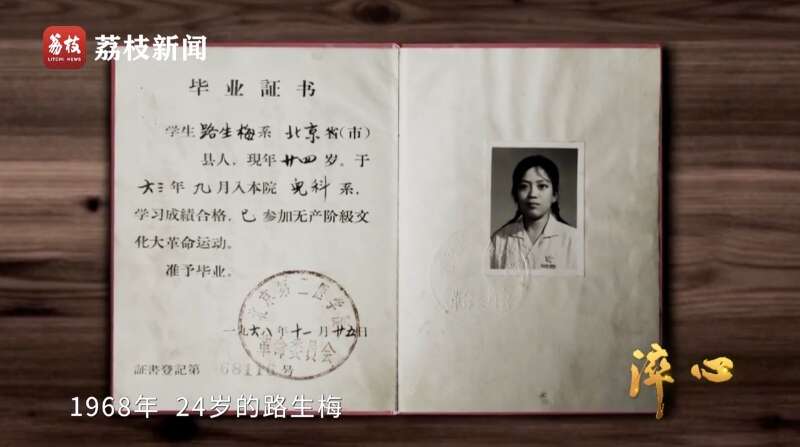 荔枝
LITCHI NEWS
荔枝新闻
毕业証书
学生路生梅系 北京省(市)
县人，现年廿四岁。于
六三年九月入本院 兒科系，
学习成績合格，已参加无产阶級文
化大革命运动。
准予毕业。
北京第二医学院
革命委員会
一九六八年十一月廿五日
証書登記第 68116 号
淬心
1968年 24岁的路生梅